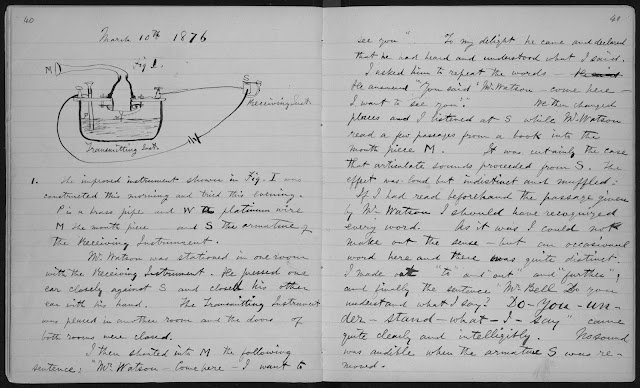 40
March 10th 1876
Fig 1.
M
S
Receiving Inst
P
W
Transmitting Inst
1. The improved instrument shown in Fig. I was
constructed this morning and tried this evening.
P is a brass pipe and W The platinum wire
M the mouth piece and S the armature of
the Receiving Instrument.
Mr. Watson was stationed in one room
with the Receiving Instrument. He pressed one
ear closely against S and closed his other
ear with his hand. The Transmitting Instrument
was placed in another room and the doors of
both rooms were closed.
I then shouted into M the following
sentence: "Mr. Watson - Come here - I want to
41
see you" To my delight he came and declared
that he had heard and understood what I said.
I asked him to repeat the words -
He answered "You said 'Mr. Watson - come here -
I want to see you'." We then changed
places and I listened at S while Mr. Watson
read a few passages from a book into the
mouth piece M. It was certainly the case
that articulate sounds proceeded from S. The
effect was loud but indistinct and muffled.
If I had read beforehand the passage given
by Mr. Watson I should have recognized
every word. As it was I could not
make out the sense - but an occasional
word here and there was quite distinct.
I made out "to" and "out" and "further";
and finally the sentence "Mr. Bell Do you
understand what I say? Do-you-un-
der-stand-what-I-say" came
quite clearly and intelligibly. No sound
was audible when the armature S was re-
moved.